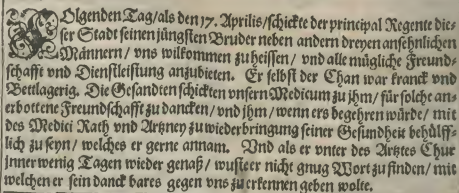 VOlgenden Tag/als den 17. Aprilis/schickte der principal Regente die-
ser Stadt seinen jüngsten Bruder neben andern dreyen ansehnlichen
Männern/ vns wilkommen zu heissen/ vnd alle mügliche Freund-
schafft vnd Dienstleistung anzubieten. Er selbst der Chan war kranck vnd
Bettlagerig. Die Gesandten schickten vnsern Medicum zu jhm/ für solche an-
erbottene Freundschafft zu dancken/ vnd jhm/ wenn ers begehren würde/ mit
des Medici Rath vnd Artzney zu wiederbringung seiner Gesundheit behülff-
lich zu seyn/ welches er gerne annam. Vnd als er vnter des Artztes Chur
jnner wenig Tagen wieder genaß/ wuste er nicht gnug Wort zu finden/ mit
welchen er sein danckbares gegen vns zu erkennen geben wolte.